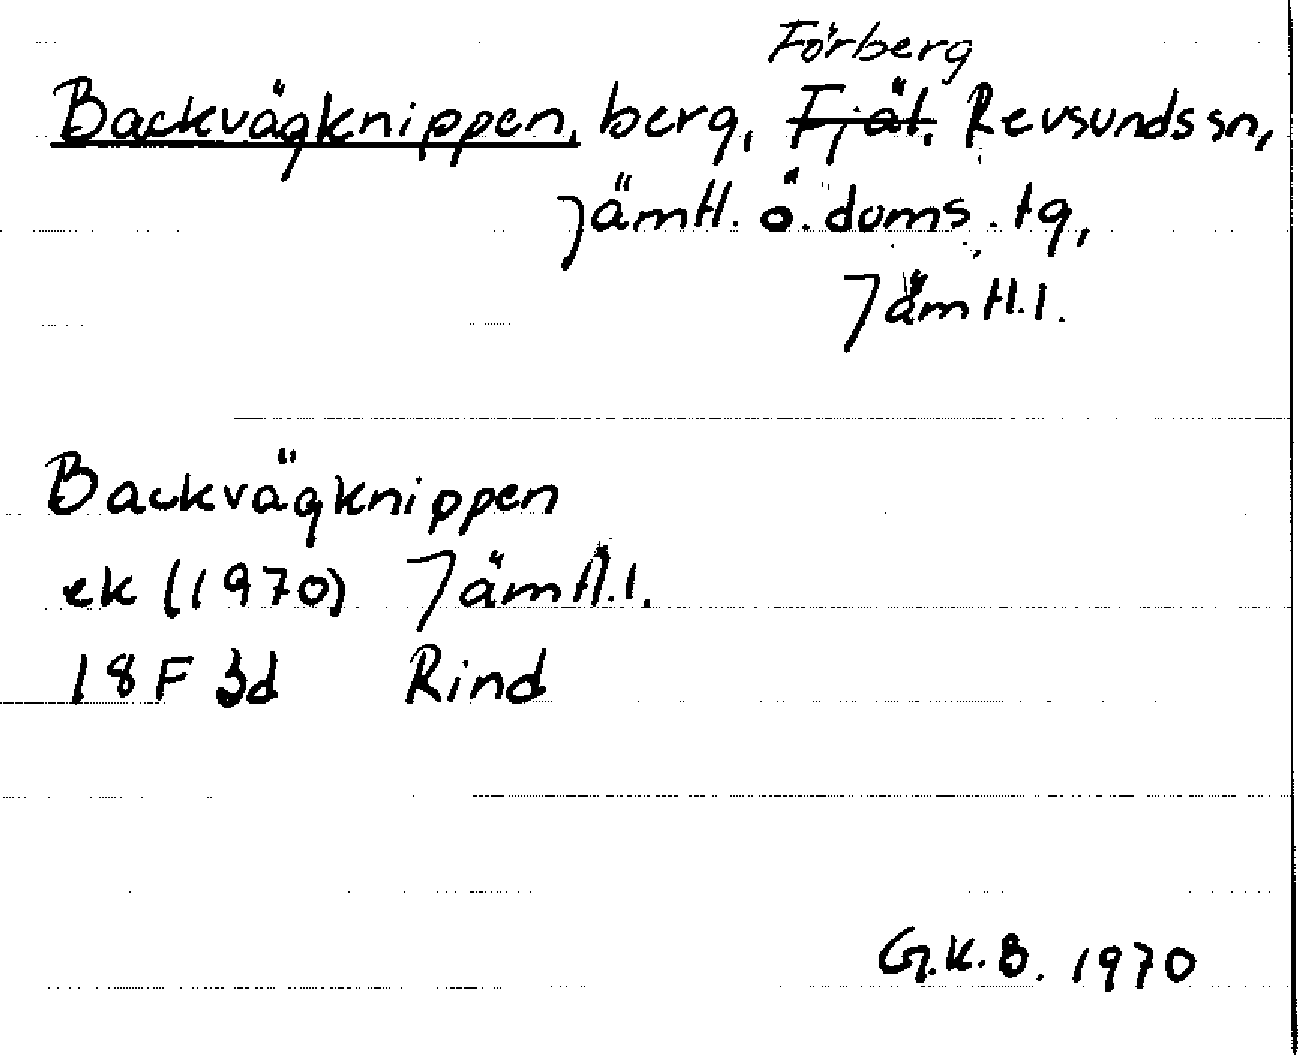 Förberg
Backvägknippen, berg, Fjät. Revsunds sn,
Jämtl. ö. doms. tg,
Jämtl. l.
Backvägknippen
ek (1970) Jämtl. l.
18F 3d Rind
G.K.B. 1970